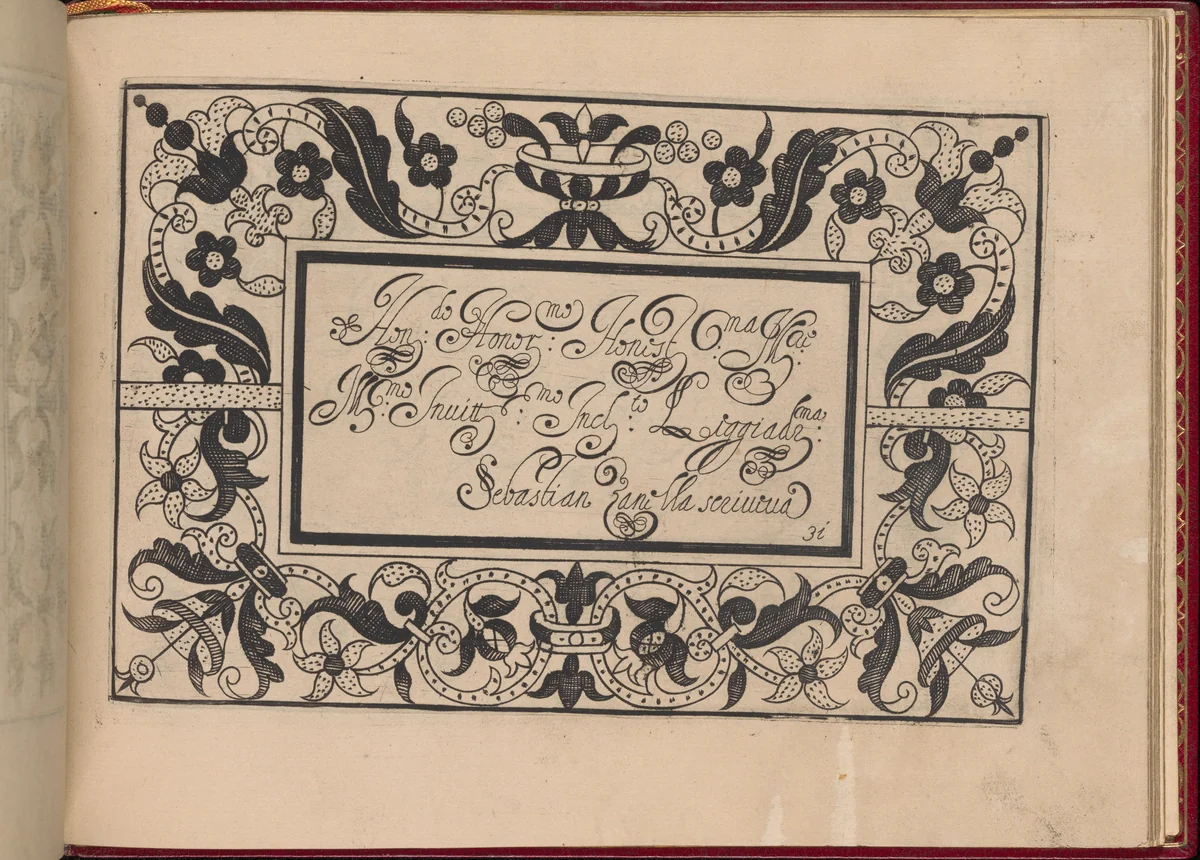 Hon:do Honor:mo Honest:ma Mai
M:mo Invitt:mo Incl:to Liggiadr:ma
Sebastian Zanella scriveva
31